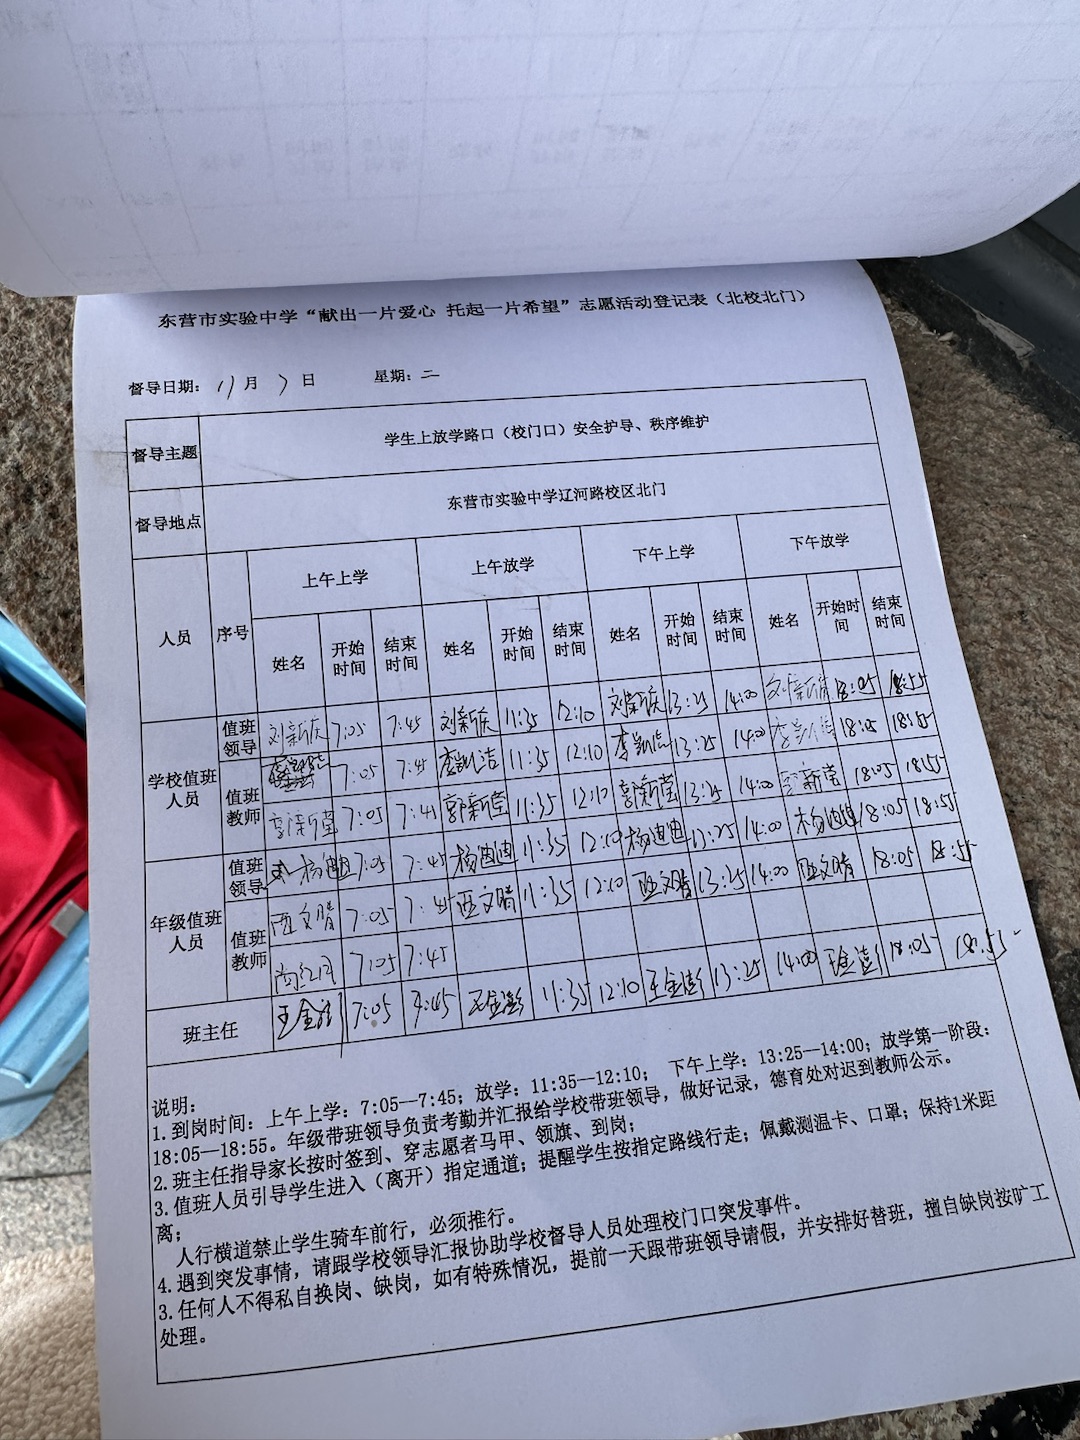 东营市实验中学“献出一片爱心 托起一片希望”志愿活动登记表（北校北门）
督导日期： 11月 7 日 星期：二
督导主题 学生上放学路口（校门口）安全护导、秩序维护
督导地点 东营市实验中学辽河路校区北门
人员 序号 上午上学 上午放学 下午上学 下午放学
姓名 开始时间 结束时间 姓名 开始时间 结束时间 姓名 开始时间 结束时间 姓名 开始时间 结束时间
学校值班人员 值班领导 7:05 7:45 11:35 12:10 13:25 14:00 18:05 18:55
值班教师 7:05 7:45 11:35 12:10 13:25 14:00 18:05 18:55
郭新莹 7:05 7:45 郭新莹 11:35 12:10 郭新莹 13:25 14:00 郭新莹 18:05 18:55
年级值班人员 值班领导 杨迪迪 7:05 7:45 杨迪迪 11:35 12:10 杨迪迪 13:25 14:00 杨迪迪 18:05 18:55
值班教师 西文晴 7:05 7:45 西文晴 11:35 12:10 西文晴 13:25 14:00 西文晴 18:05 18:55
7:05 7:45
班主任 7:05 7:45 王金澎 11:35 12:10 王金澎 13:25 14:00 18:05 18:55
说明：
1.到岗时间：上午上学：7:05—7:45；放学：11:35—12:10； 下午上学：13:25—14:00；放学第一阶段：
18:05—18:55。年级带班领导负责考勤并汇报给学校带班领导，做好记录，德育处对迟到教师公示。
2.班主任指导家长按时签到、穿志愿者马甲、领旗、到岗；
3.值班人员引导学生进入（离开）指定通道；提醒学生按指定路线行走；佩戴测温卡、口罩；保持1米距
离；
人行横道禁止学生骑车前行，必须推行。
4.遇到突发事情，请跟学校领导汇报协助学校督导人员处理校门口突发事件。
3.任何人不得私自换岗、缺岗，如有特殊情况，提前一天跟带班领导请假，并安排好替班，擅自缺岗按旷工
处理。